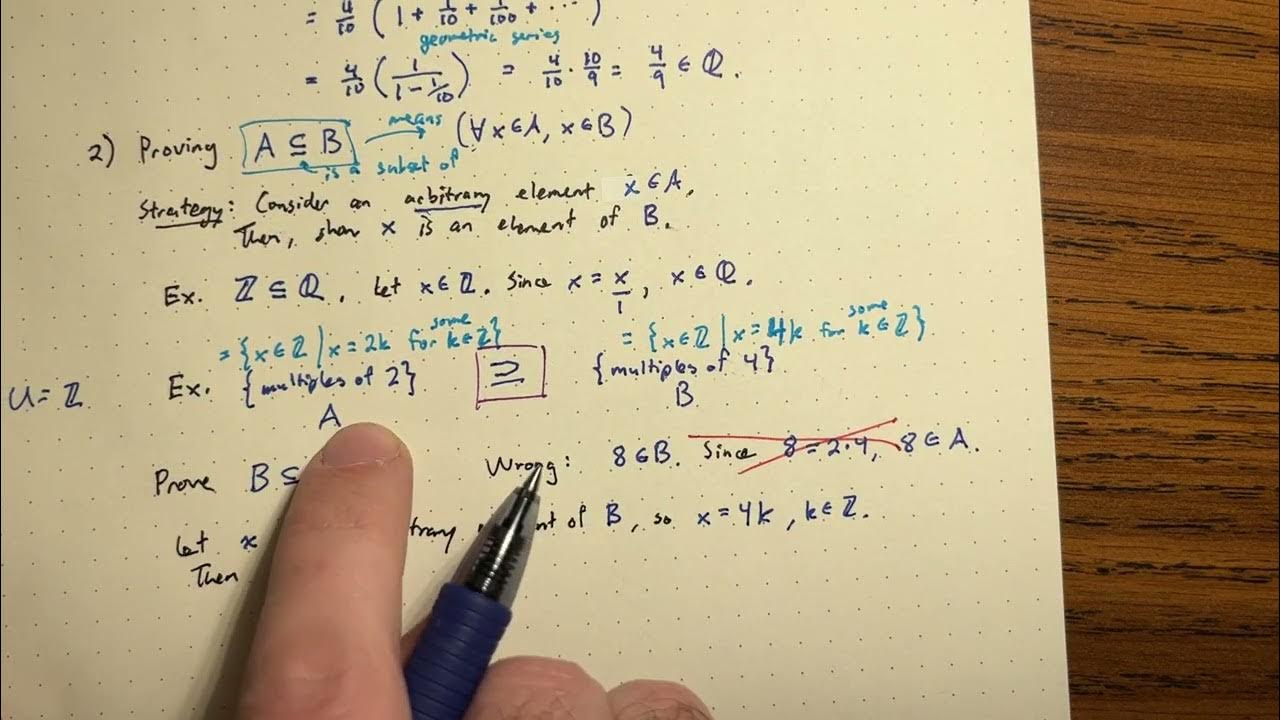 = 4/10 ( 1 + 1/10 + 1/100 + ... )
geometric series
= 4/10 ( 1/(1 - 1/10) ) = 4/10 · 10/9 = 4/9 ∈ ℚ.
2) Proving A ⊆ B means (∀ x ∈ A, x ∈ B)
is a subset of
Strategy: Consider an arbitrary element x ∈ A.
Then, show x is an element of B.
Ex. ℤ ⊆ ℚ. Let x ∈ ℤ. Since x = x/1, x ∈ ℚ.
= {x ∈ ℤ | x = 2k for some k ∈ ℤ} = {x ∈ ℤ | x = 4k for some k ∈ ℤ}
U = ℤ Ex. {multiples of 2} ⊇ {multiples of 4}
A B
Prove B ⊆ Wrong: 8 ∈ B. Since 8 = 2·4, 8 ∈ A.
Let x of B, so x = 4k, k ∈ ℤ.
Then